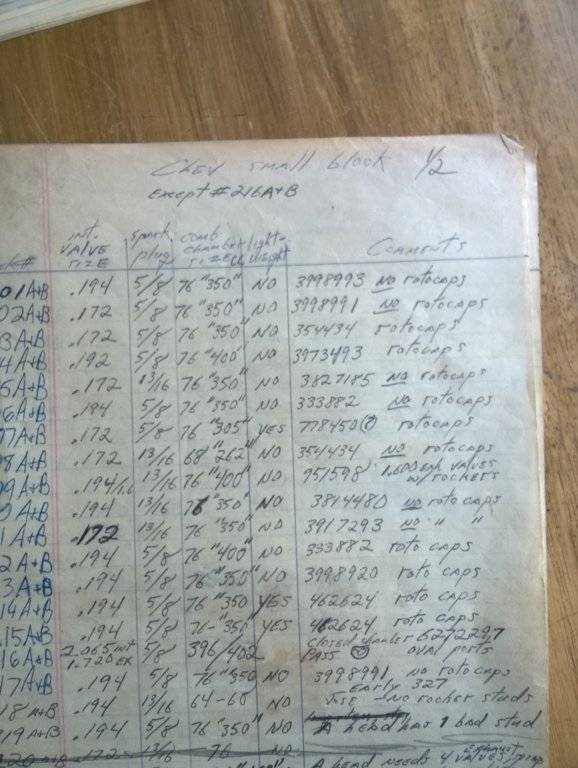 Chev small block 1/2
Except #216A+B
INT. VALVE SIZE spark plug comb chamber SIZE light-weight Comments
01A+B .194 5/8 76 "350" NO 3998993 NO rotocaps
02A+B .172 5/8 76 "350" NO 3998991 NO rotocaps
3A+B .172 5/8 76 "350" NO 354434 rotocaps
4A+B .192 5/8 76 "400" NO 3973493 rotocaps
5A+B .172 13/16 76 "350" NO 3827185 NO rotocaps
6A+B .194 5/8 76 "350" NO 333882 NO rotocaps
7A+B .172 5/8 76 "305" YES 778450 rotocaps
8A+B .172 13/16 68 "262" NO 354434 NO rotocaps
9A+B .194/1.6 13/16 76 "400" NO 951598 1.600 EX VALVES w/rockers
A+B .194 13/16 76 "350" NO 3814480 NO rotocaps
1A+B .172 13/16 76 "350" NO 3917293 NO " "
2A+B .194 5/8 76 "400" NO 333882 roto caps
3A+B .194 5/8 76 "350" NO 3998920 roto caps
14A+B .194 5/8 76 "350 YES 462624 roto caps
15A+B .194 5/8 76 "350 YES 462624 roto caps
16A+B 2.065 INT 1.720 EX 5/8 396/402 closed 6272297 PASS oval ports
17A+B .194 5/8 76 "350 NO 3998991 NO rotocaps
18A+B .194 13/16 64-60 NO EARLY 327 USE - NO rocker studs
19A+B .194 5/8 76 "350" NO A head has 1 bad stud
220A+B .172 13/16 76 NO
A head needs 4 Exhaust VALVES